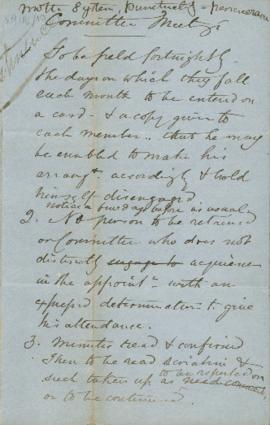 motto System, punctuality - perseverance
Committee Meetgs
To be held fortnightly.
The days on which they fall
each month to be entered on
a card - & a copy given to
each member. That he may
be enabled to make his
arrangts accordingly & hold
himself disengaged
notice a few days before as usual
2. No person to be retained
on Committee who does not
distinctly engage to acquiesce
in the appointt with an
expressed determination to give
his attendance.
3. Minutes read & confirmed
Then to be read seriatim &
to be reported on
such taken up as need
or to be continued.